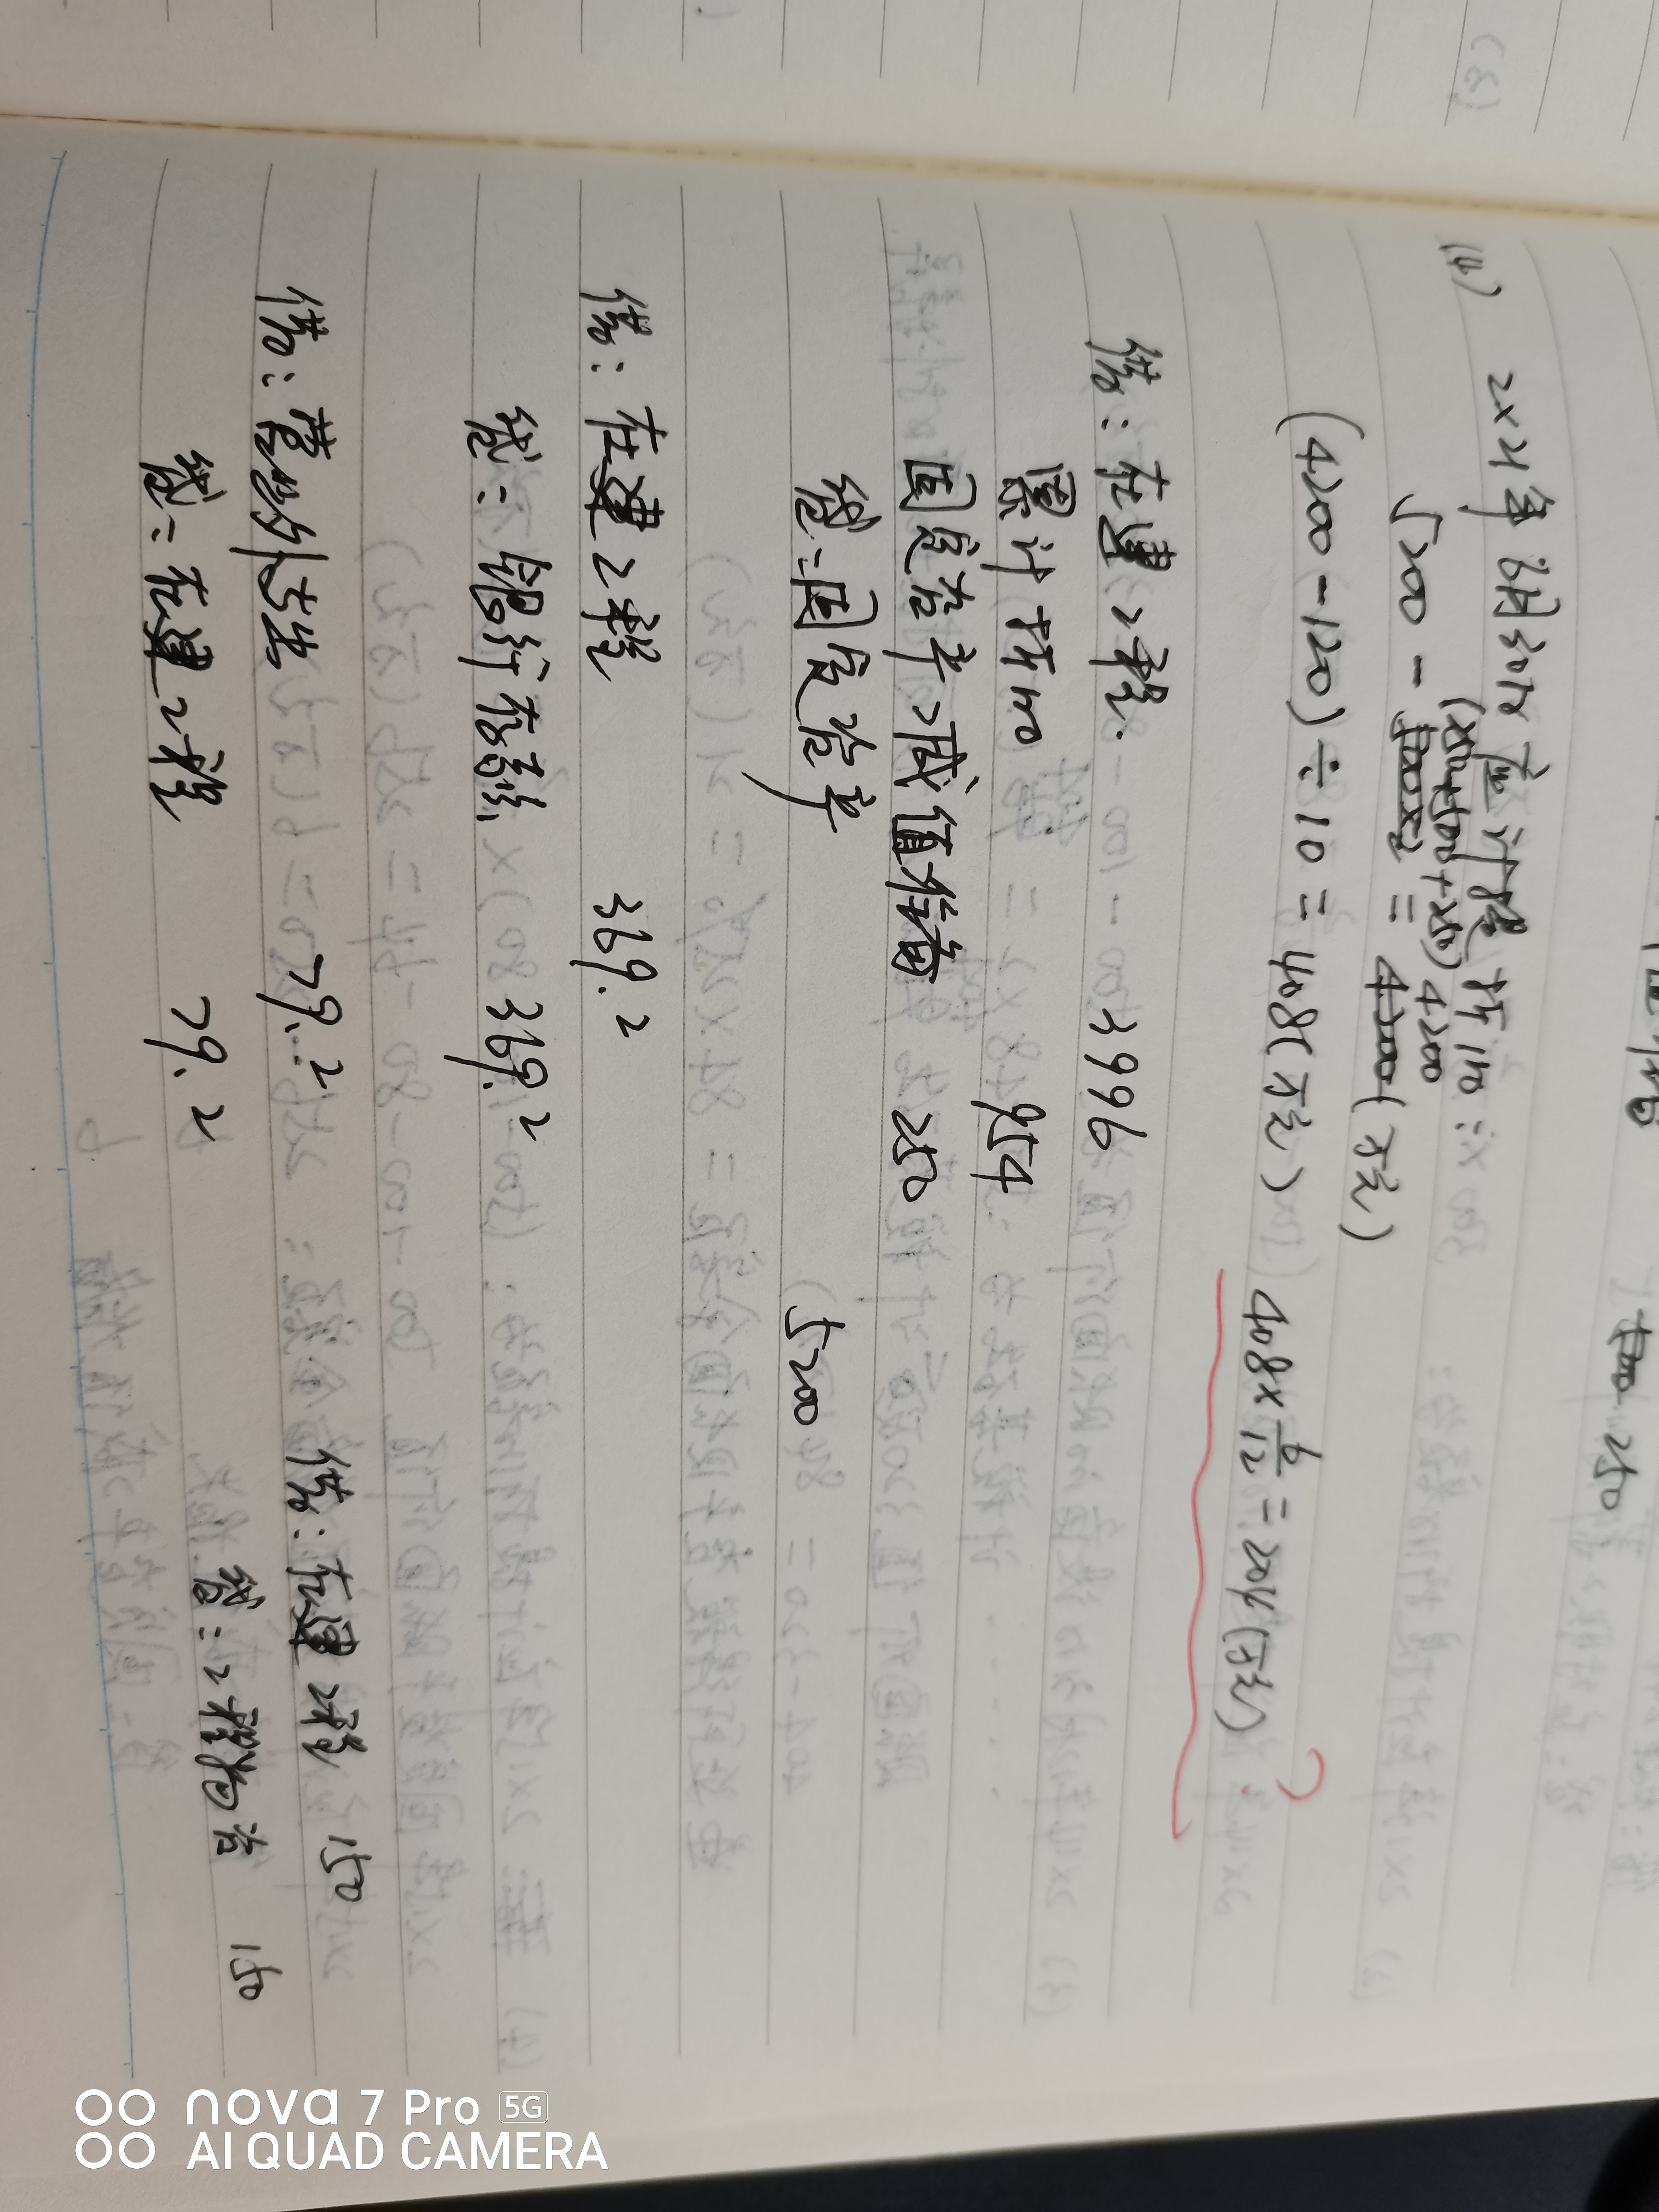 (4) 2×21年6月30日应计提折旧:
(250+500+250) 4200
5200 - = (万元)
(4200-120)÷10=408(万元) 408×6/12=204(万元)
?
借:在建工程 3996
累计折旧 954
固定资产减值准备 250
贷:固定资产 5200
借:在建工程 369.2
贷:银行存款 369.2
借:营业外支出 79.2
贷:在建工程 79.2
借:在建工程 150
贷:工程物资 150
250
nova 7 Pro 5G
AI QUAD CAMERA